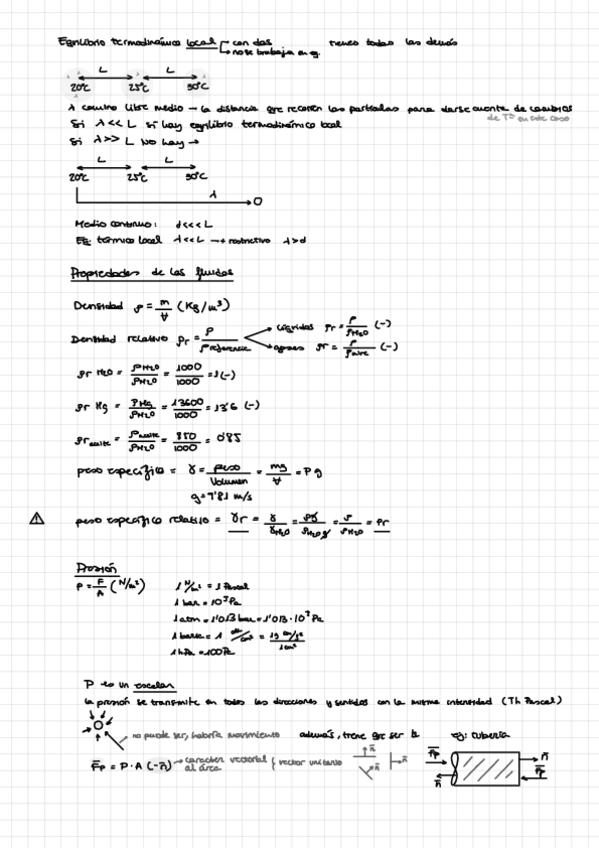 Equilibrio termodinámico local con dos tienes todas las demás
no se trabaja en eq.
L L
20°C 25°C 30°C
λ camino libre medio → la distancia que recorren las partículas para darse cuenta de cambios
de Tª en este caso
Si λ << L sí hay equilibrio termodinámico local
Si λ >> L NO hay →
L L
20°C 25°C 30°C
λ
Medio continuo: d <<< L
Eq. térmico local λ << L → + restrictivo λ > d
Propiedades de los fluidos
Densidad ρ = m/V (Kg/m³)
Densidad relativa ρr = ρ/ρreferencia líquidos ρr = ρ/ρH₂O (-)
gases ρr = ρ/ρaire (-)
ρr H₂O = ρH₂O/ρH₂O = 1000/1000 = 1 (-)
ρr Hg = ρHg/ρH₂O = 13600/1000 = 13'6 (-)
ρr aceite = ρaceite/ρH₂O = 850/1000 = 0'85
peso específico = γ = peso/Volumen = mg/V = ρg
g = 9'81 m/s
⚠ peso específico relativo = γr = γ/γH₂O = ρg/ρH₂O g = ρ/ρH₂O = ρr
Presión
P = F/A (N/m²) 1 N/m² = 1 Pascal
1 bar = 10⁵ Pa
1 atm = 1'013 bar = 1'013 · 10⁵ Pa
1 baria = 1 din/cm² = 1g cm/s²/1cm²
1 hPa = 100 Pa
P es un escalar
La presión se transmite en todas las direcciones y sentidos con la misma intensidad (Th Pascal)
no puede ser, habría movimiento además, tiene que ser ⊥ ej: tubería
Fp = P · A (-n) → carácter vectorial al área { vector unitario n n n
Fp n n Fp